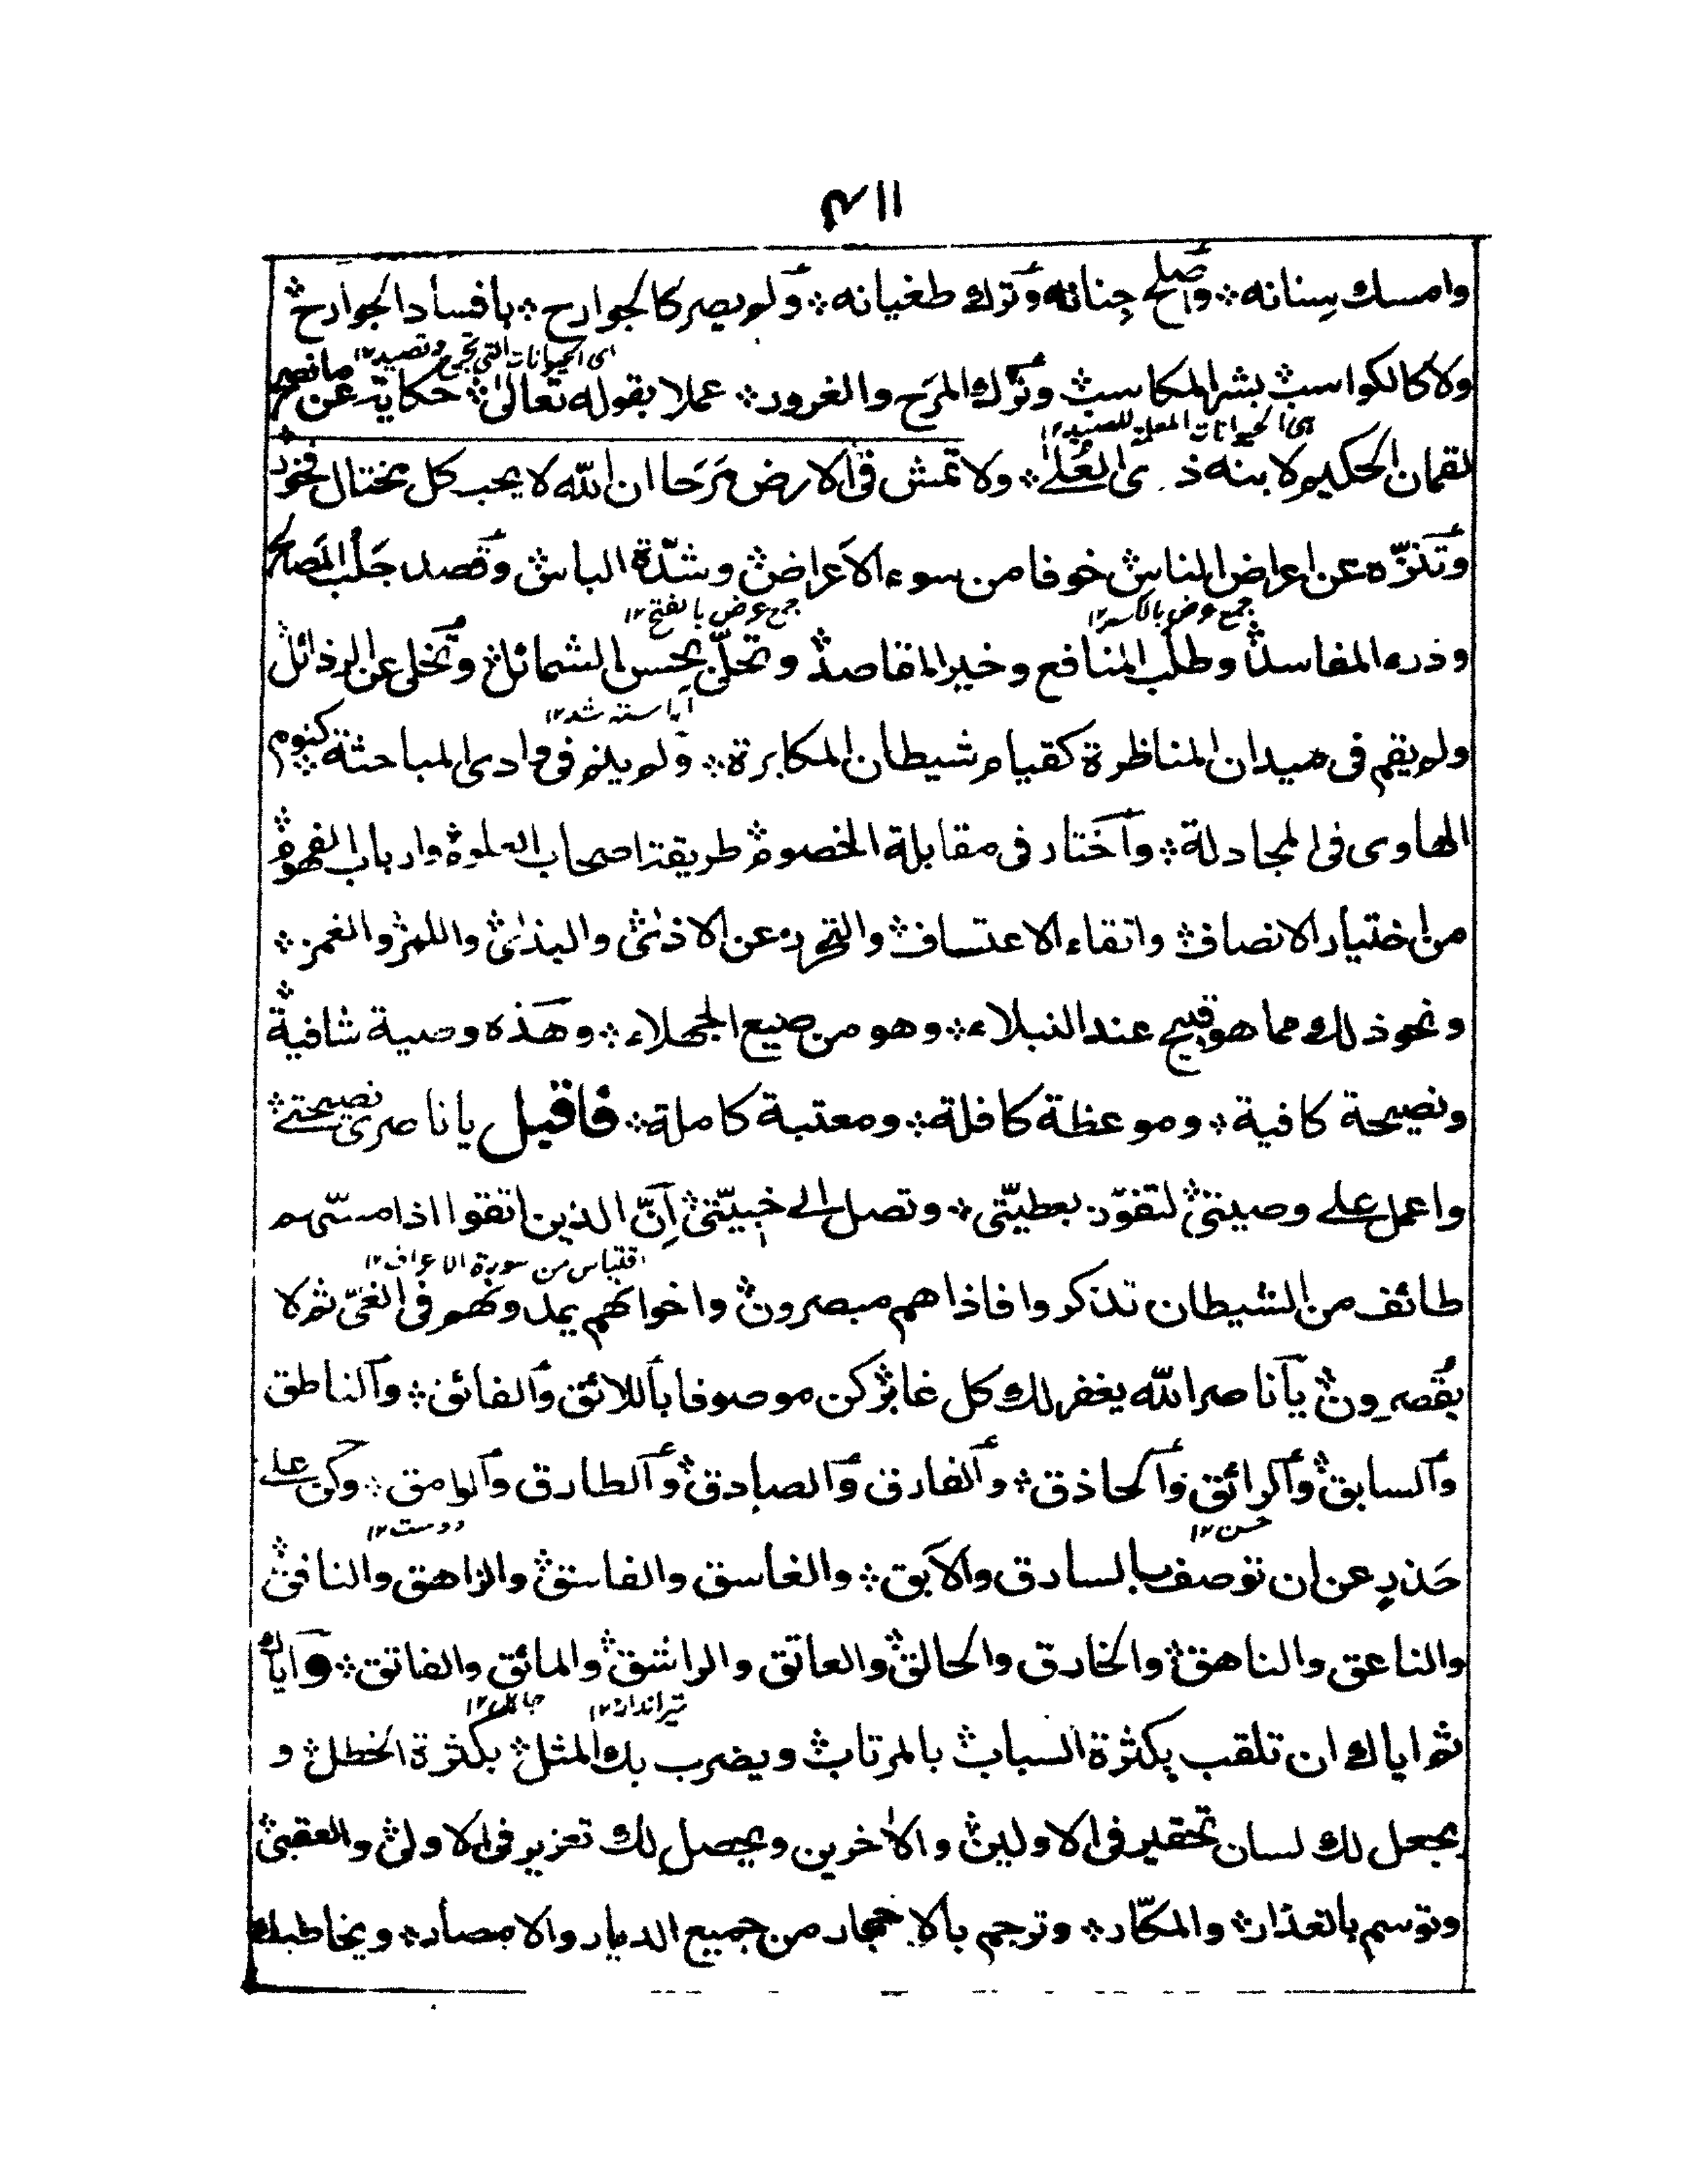 ١١٣
وامسك سنانه ؞ واَصلح جنانه وترك طغيانه ؞ ولم يصر كالجوارح ؞ بافساد الجوارح ؞
اى الحيوانات التى تجرح وتصيد ١٢
ولا كالكواسب ؞ بشر المكاسب ؞ وترك المَرَح والغرور ؞ عملا بقوله تعالىٰ ؞ حكاية عن ما نصح
هى الحيوانات المعلمة للصيد ١٢
لقمان الحكيم لابنه ذى العُلىٰ ؞ ولا تمش فى الارض مَرَحا ان الله لا يحب كل مختال فخور ؞
وتَنزّه عن اعراض الناس ؞ خوفا من سوء الاَعراض ؞ وشدّة الباس ؞ وقصد جَلْب المَصالح
جمع عرض بالكسر ١٢
جمع عرض بالفتح ١٢
وذرء المفاسد ؞ وطلب المنافع وخير المقاصد ؞ وتحلّى بحسن الشمائل ؞ وتُخلى عن الرذائل ؞
آراسته شد ١٢
ولم يقم فى ميدان المناظرة كقيام شيطان المكابرة ؞ ولم ينم فى وادى المباحثة ؞ كنوم
الهاوى فى المجادلة ؞ واَختار فى مقابلة الخصوم ؞ طريقة اصحاب العلوم ؞ وارباب الفهوم ؞
من اختيار الانصاف ؞ واتقاء الاعتساف ؞ والتحرز عن الاذىٰ ؞ والبذىٰ ؞ واللمز ؞ والغمز ؞
ونحو ذلك مما هو قبيح عند النبلاء ؞ وهو من صنيع الجهلاء ؞ وهَذه وصية شافية ؞
ونصيحة كافية ؞ وموعظة كافلة ؞ ومعتبة كاملة ؞ فاقبل يا ناصرى نصيحتى ؞
واعمل على وصيتى ؞ لتفوز بعطيّتى ؞ وتصل الى خبيّتى ؞ اِنّ الذين اتقوا اذا مسّهم
اقتباس من سورة الاعراف ١٢
طائف من الشيطان تذكروا فاذا هم مبصرون ؞ واخوانهم يمدونهم فى الغىّ ثم لا
يُقصِرون ؞ ياَ ناصر الله يغفر لك كل غابر ؞ كن موصوفا باَللائق واَلفائق ؞ واَلناطق
واَلسابق ؞ واَلرائق واَلحاذق ؞ واَلفارق واَلصادق ؞ واَلطارق واَلوامق ؞ وكن على
حسن ١٢
دوست ١٢
حَذرٍ عن ان توصف بالسارق والاَبق ؞ والغاسق والفاسق ؞ والزاهق والنافق ؞
والناعق والناهق ؞ والخارق والحالق ؞ والعاتق والراشق ؞ والمائق والفاتق ؞ واياك
تيرانداز ١٢
جاهل ١٢
ثم اياك ان تلقب بكثرة السباب ؞ بالمرتاب ؞ ويضرب بك المثل ؞ بكثرة الخطل ؞ و
يجعل لك لسان تحقير فى الاولين ؞ والاٰخرين ويحصل لك تعزير فى الاولىٰ ؞ والعقبىٰ ؞
وتوسم بالغدّار ؞ والمكّار ؞ وترجم بالاحجار من جميع الديار والامصار ؞ ويخاطبك